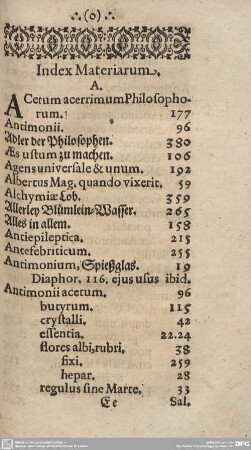 (o)
Index Materiarum.
A.
ACetum acerrimum Philosopho-
rum. 177
Antimonii. 96
Adler der Philosophen. 380
Æs ustum zu machen. 106
Agens universale & unum. 192
Albertus Mag. quando vixerit. 59
Alchymiæ Lob. 359
Allerley Blümlein-Wasser. 265
Alles in allem. 158
Antiepileptica. 215
Antefebriticum. 255
Antimonium, Spießglas. 19
Diaphor. 116. ejus usus ibid.
Antimonii acetum. 96
butyrum. 115
crystalli. 42
essentia. 22.24
flores albi, rubri. 38
fixi. 259
hepar. 28
regulus sine Marte. 33
Ee Sal.
DFG